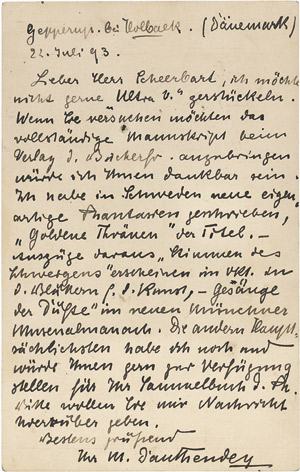 bei Holbaek. (Dänemark)
22. Juli 93.
Lieber Herr Scheerbart, ich möchte
nicht gerne "Ultra V." zerstückeln.
Wenn Sie versuchen möchten das
vollständige Manuskript beim
Verlag d. anzubringen
würde ich Ihnen dankbar sein.
Ich habe in Schweden neue eigen-
artige Phantasien geschrieben,
"Goldene Thränen" der Titel. –
Auszüge daraus "Stimmen des
Schweigens" erscheinen im
d. Blättern f. d. Kunst, – Gesänge
der Düfte" im neuen Münchner
Musenalmanach. Die andern Haupt-
sächlichsten habe ich noch und
würde Ihnen gern zur Verfügung
stellen für Ihr Sammelbuch d. Ph.
Bitte wollen Sie mir Nachricht
hierüber geben.
Bestens grüßend
Ihr M. Dauthendey